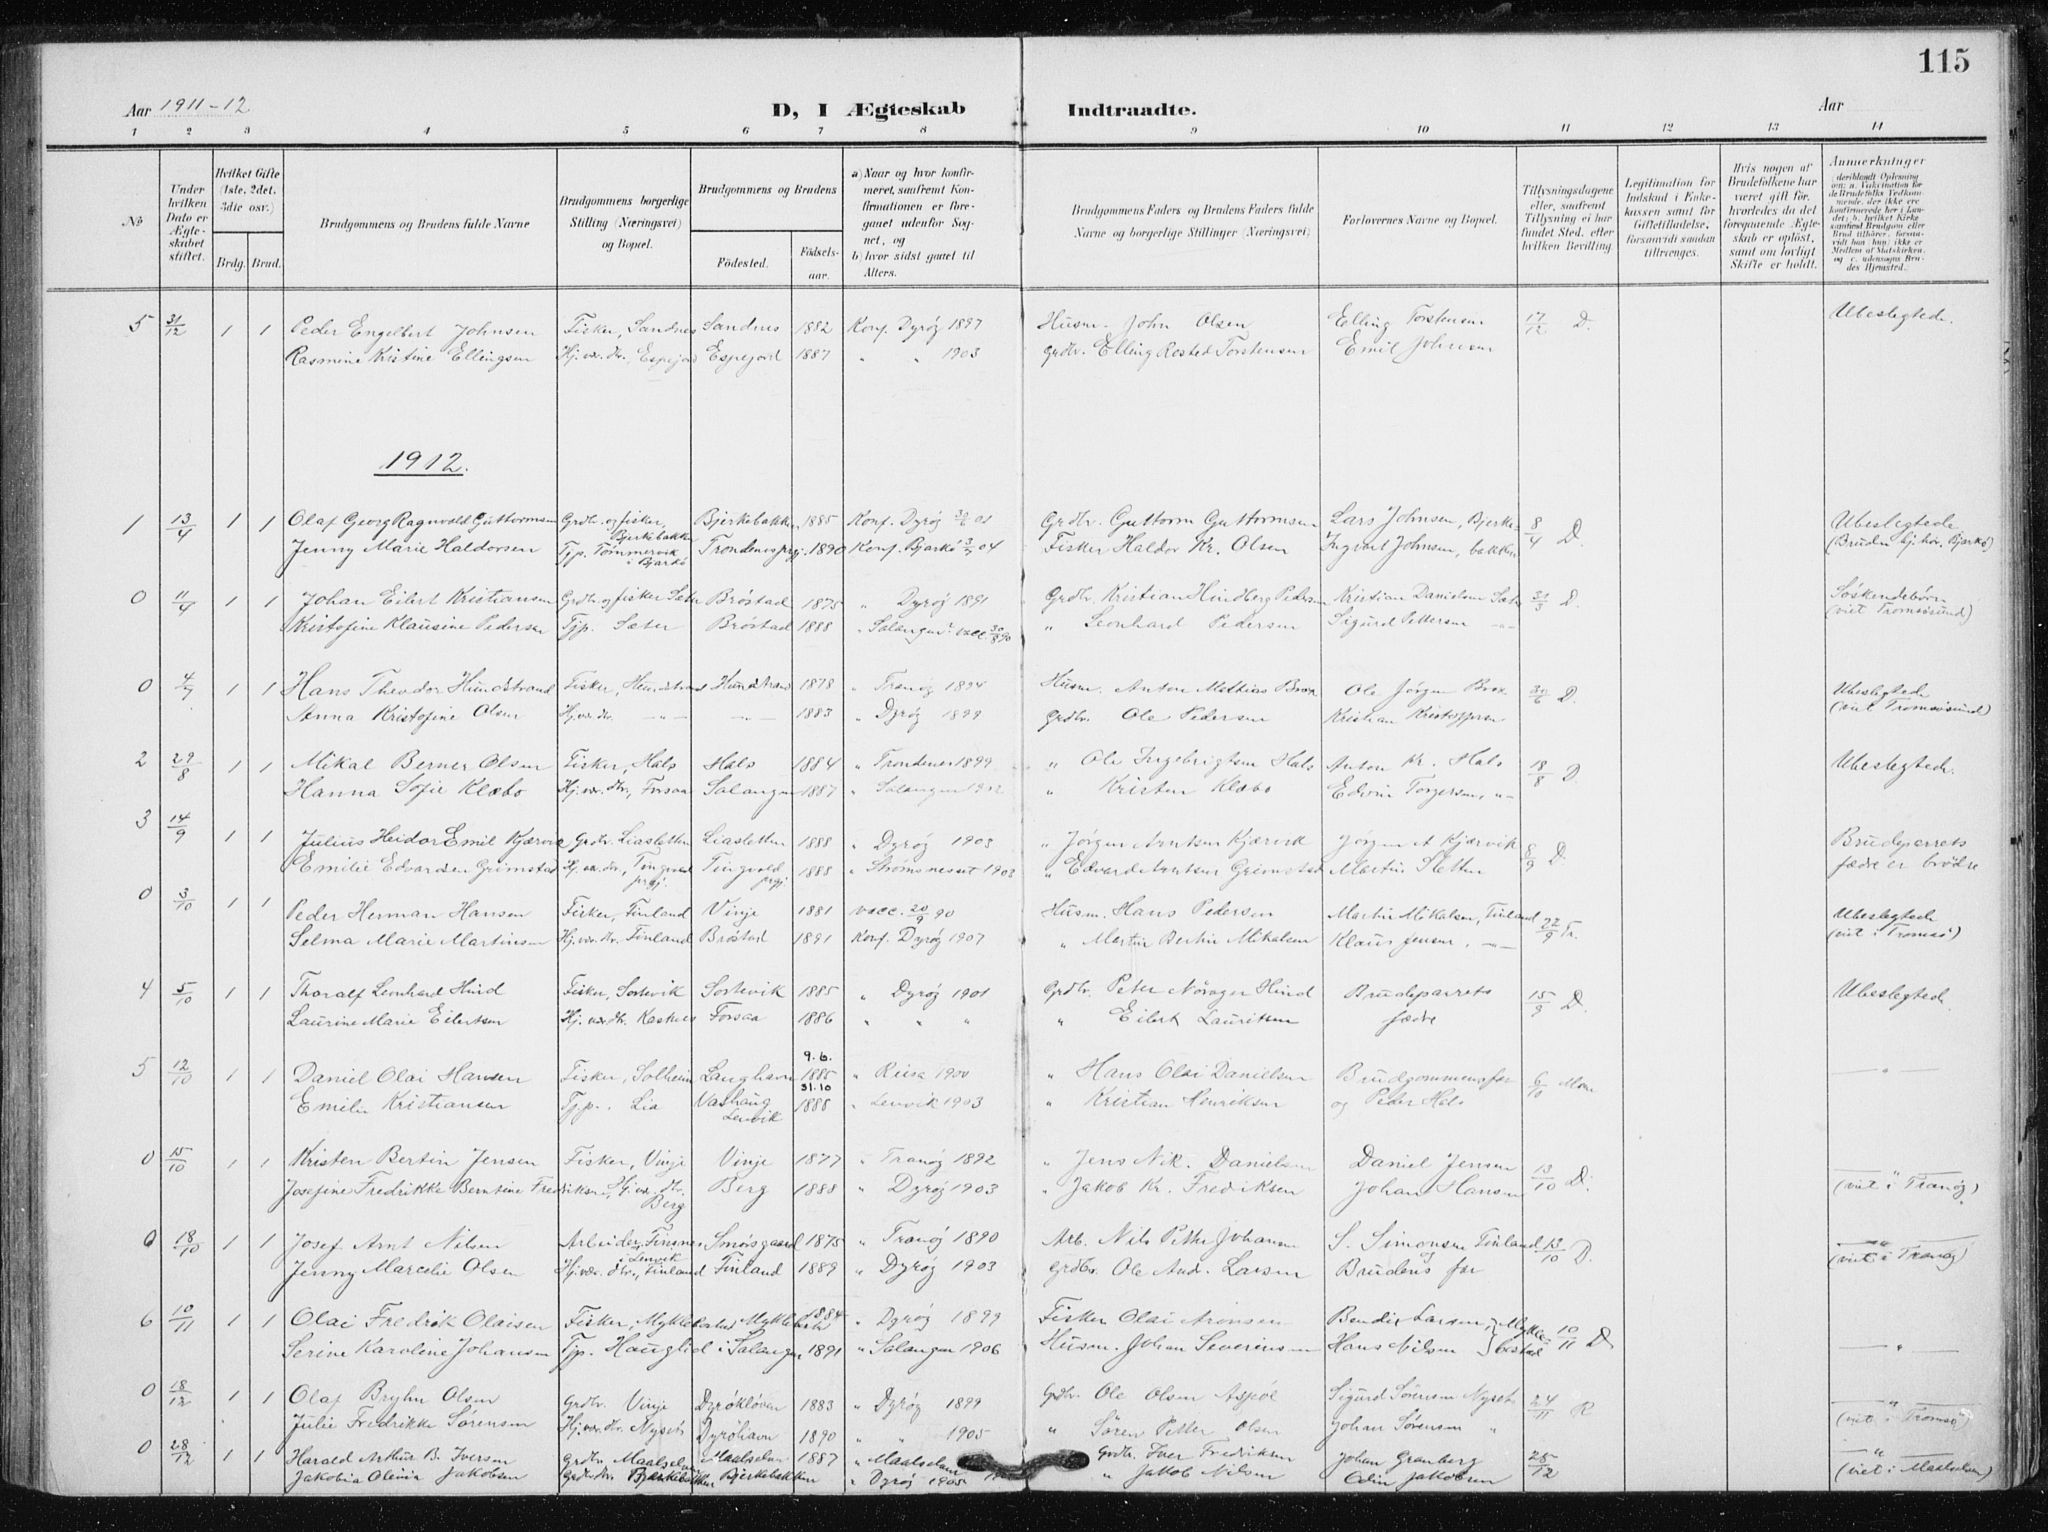 115
Aar 1911-12 D, I Ægteskab Indtraadte. Aar
1 2 3 4 5 6 7 8 9 10 11 12 13 14
No
Under hvilken Dato er Ægteskabet stiftet.
Hvilket Gifte (1ste, 2det, 3die osv.)
Brdg. Brud.
Brudgommens og Brudens fulde Navne
Brudgommens borgerlige Stilling (Næringsvei) og Bopæl.
Brudgommens og Brudens
Fødested. Fødselsaar.
a) Naar og hvor konfirmeret, saafremt Konfirmationen er foregaaet udenfor Sognet, og
b) hvor sidst gaaet til Alters.
Brudgommens Faders og Brudens Faders fulde Navne og borgerlige Stillinger (Næringsvei)
Forlovernes Navne og Bopæl.
Tillysningsdagene eller, saafremt Tillysning ei har fundet Sted, efter hvilken Bevilling.
Legitimation for Indskud i Enkekassen samt for Giftetilladelse, forsaavidt saadan tiltrænges.
Hvis nogen af Brudefolkene har været gift før, hvorledes da det foregaaende Ægteskab er opløst, samt om lovligt Skifte er holdt.
Anmerkninger
5 31/12 1 1 Peder Engelbert Johnsen Fisker, Sandnes Sandnes 1882 Konf. Dyrøy 1897 Husm. John Olsen Elling Torstensen 17/12 D. Ubeslegtede.
Rasmine Kristine Ellingsen Hj. vær. dtr. Espejord Espejord 1887 " " 1903 Grdbr. Elling Rosted Torstensen Emil Johnsen
1912.
1 13/4 1 1 Olaf Georg Ragnvald Guttormsen Grdbr. og fisker, Bjerkebakken Bjerkebakken 1885 Konf. Dyrøy 01 Grdbr. Guttorm Guttormsen Lars Johnsen, Bjerke- 8/4 D. Ubeslegtede
Jenny Marie Haldorsen Tjp. Tømmervik i Bjarkø Trondenes prgj. 1890 Konf. Bjarkø 04 Fisker Haldor Kr. Olsen Ingvart Johnsen, bakken (Bruden hj. hør. Bjarkø)
0 11/4 1 1 Johan Eilert Kristiansen Grdbr. og fisker Sæter Brøstad 1875 " Dyrøy 1891 Grdbr. Kristian Hindberg Pedersen Kristian Danielsen Sæter 31/3 D. Søskendebørn
Kristofine Klausine Pedersen Tjp. Sæter Brøstad 1888 " Salangen vacc. 30/8 90 " Leonhard Pedersen Sigurd Pettersen -"- (viet Tromsøsund)
0 4/7 1 1 Hans Theodor Hundstrand Fisker, Hundstrand Hundstrand 1878 " Tranøy 1894 Husm. Anton Mathias Brox Ole Jørgen Brox 30/6 D. Ubeslegtede
Anna Kristofine Olsen Hj. vær. dtr. -"- -"- 1883 " Dyrøy 1899 Grdbr. Ole Pedersen Kristian Kristoffersen (viet Tromsøsund)
2 29/8 1 1 Mikal Berner Olsen Fisker, Hals Hals 1884 " Trondenes 1899 " Ole Ingebrigtsen Hals Anton Kr. Hals 18/8 D. Ubeslegtede.
Hanna Sofie Klæbo Hj. vær. dtr., Forsaa Salangen 1887 " Salangen 1902 " Kristen Klæbo Edvin Torgersen, -"-
3 14/9 1 1 Julius Heidor Emil Kjærvik Grdbr. Liasletten Liasletten 1888 " Dyrøy 1903 " Jørgen Arntsen Kjærvik Jørgen A Kjærvik 8/9 D. Brudeparrets
Emilie Edvardsen Grimstad Hj. vær. dtr., Tingvold prgj. Tingvold prgj. 1888 " Strømsneset 1903 " Edvard Arntsen Grimstad Martin Sletten fædre er brødre
0 3/10 1 1 Peder Herman Hansen Fisker, Finland Vinje 1881 vacc. 20/9 90 Husm. Hans Pedersen Martin Mikalsen, Finland 22/9 Tr. Ubeslegtede
Selma Marie Martinsen Hj. vær. dtr. Finland Brøstad 1891 Konf. Dyrøy 1907 " Martin Bertin Mikalsen Klaus Jensen, -"- (viet i Tromsø)
4 5/10 1 1 Thoralf Leonhard Hind Fisker, Sortevik Sortevik 1885 " Dyrøy 1901 Grdbr. Peter Nørager Hind Brudeparrets 15/9 D. Ubeslegtede
Laurine Marie Eilertsen Hj. vær. dtr. Kasthes Forsaa 1886 " " " " Eilert Lauritsen fædre
5 12/10 1 1 Daniel Olai Hansen Fisker, Solheim Langhavn 9.6. 1885 " Reisa 1900 " Hans Olai Danielsen Brudgommens far 6/10 — " —
Emilie Kristiansen Tjp., Lia Vanhaug Lenvik 31.10 1888 " Lenvik 1903 " Kristian Henriksen og Peder Hals
0 15/10 1 1 Kristen Bertin Jensen Fisker, Vinje Vinje 1877 " Tranøy 1892 " Jens Nik. Danielsen Daniel Jensen 13/10 D. — " —
Josefine Fredrikke Berntine Fredriksen, Hj. vær. dtr. Berg Berg 1888 " Dyrøy 1903 " Jakob Kr. Fredriksen Johan Hansen (viet i Tranøy)
0 18/10 1 1 Josef Arnt Nilsen Arbeider, Finsnes i Lenvik Smørsgaard 1875 " Tranøy 1890 Arb. Nils Petter Johansen S. Simonsen Finland 13/10 D. — " —
Jenny Marcelie Olsen Hj. vær. dtr., Finland Finland 1889 " Dyrøy 1903 Grdbr. Ole And. Larsen Brudens far (viet i Tranøy)
6 10/11 1 1 Olai Fredrik Olaisen Fisker, Myklebostad Myklebostad 1884 " Dyrøy 1899 Fisker Olai Aronsen Bendix Larsen, Mykle- 10/11 D — " —
Serine Karoline Johansen Tjp. Hauglid i Salangen 1891 " Salangen 1906 Husm. Johan Severinsen Hans Nilsen bostad
0 18/12 1 1 Olaf Bryhn Olsen Grdbr. Vinje Dyrøkløven 1883 " Dyrøy 1899 Grdbr. Ole Olsen Aspøl Sigurd Sørensen Nyset 24/11 R — " —
Julie Fredrikke Sørensen Hj. vær. dtr. Nyset Dyrøhavn 1890 " " 1905 " Søren Petter Olsen Johan Sørensen " (viet i Tromsø)
0 28/12 1 1 Harald Arthur B. Iversen Grdbr. Maalselven Maalselven 1887 " Maalselven Grdbr. Iver Fredriksen Johan Granberg 25/12 "
Jakobia Olinia Jakobsen Grdbr. dtr. Bjerkebakken Bjerkebakken " Dyrøy 1905 " Jakob Nilsen Odin Jakobsen (viet i Maalselven)